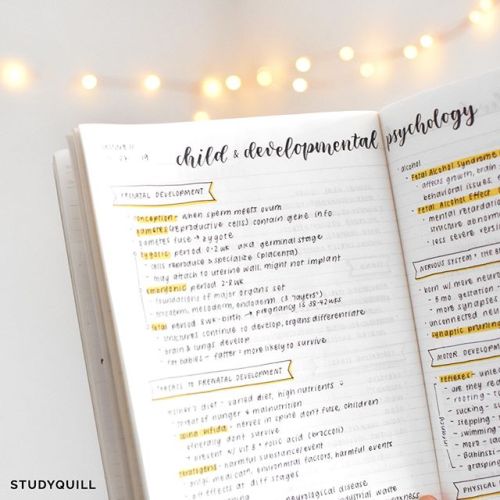 child & developmental psychology
PRENATAL DEVELOPMENT
conception - when sperm meets ovum
gametes (reproductive cells) contain gene info
gametes fuse → zygote
zygotic period 0-2wk aka germinal stage
cells reproduce & specialize (placenta)
may attach to uterine wall, might not implant
embryonic period 2-8wk
foundations of major organs set
ectoderm, mesoderm, endoderm (3 "layers")
fetal period 8wk-birth → pregnancy is 38-42wks
structures continue to develop, organs differentiate
brain & lungs develop
fat babies - fatter = more likely to survive
THREATS TO PRENATAL DEVELOPMENT
mother's diet - varied diet, high nutrients
threat of hunger & malnutrition
spina bifida - nerves in spine dont fuse, children
generally dont survive
prevent w/ vit B + folic acid (broccoli)
teratogens - harmful substance/event
medicain, environmental factors, harmful events
effects at diff stages
neurological disease
industrial waste
alcohol
Fetal Alcohol Syndrome
affects growth, brain
behavioral issues
Fetal Alcohol Effect
mental retardation
structure abnorm
less severe version
NERVOUS SYSTEM + THE
born w/ more neu
5 mo gestation
more synapses
unconnected neu
synaptic pruning
MOTOR DEVELOPM
reflexes - unlea
are they re
rooting -
sucking - s
stepping -
swimming
more -
grasping
PHYSICAL
STUDYQUILL